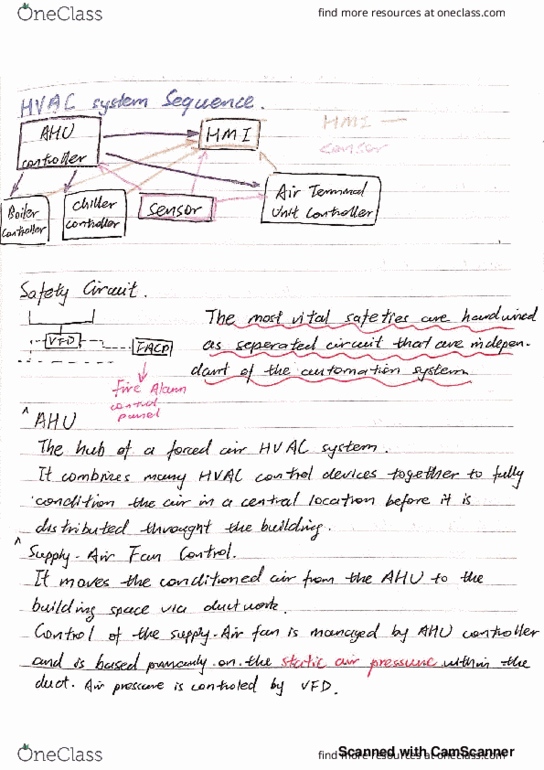 OneClass
find more resources at oneclass.com
HVAC system Sequence.
AHU
controller
HMI
HMI —
Sensor
Boiler
controller
chiller
controller
Sensor
Air Terminal
Unit Controller
Safety Circuit.
VFD
FACP
Fire Alarm
control
panel
The most vital safeties are handwired
as seperated circuit that are indepen-
dant of the automation system.
^ AHU
The hub of a forced air HVAC system.
It combines many HVAC control devices together to fully
condition the air in a central location before it is
distributed throught the building.
^ Supply-Air Fan Control.
It moves the conditioned air from the AHU to the
building space via ductwork.
Control of the supply-Air fan is managed by AHU controller
and is based primarily on the static air pressure within the
duct. Air pressure is controled by VFD.
OneClass
find more resources at oneclass.com
Scanned with CamScanner